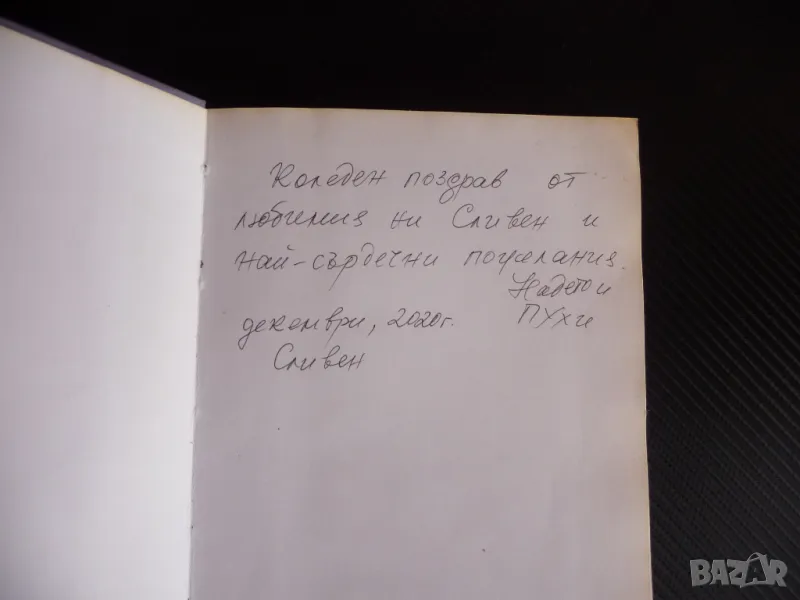 Коледен поздрав от
любимия ни Сливен и
най-сърдечни пожелания.
Надето и
Пухи
декември, 2020г.
Сливен
BAZAR